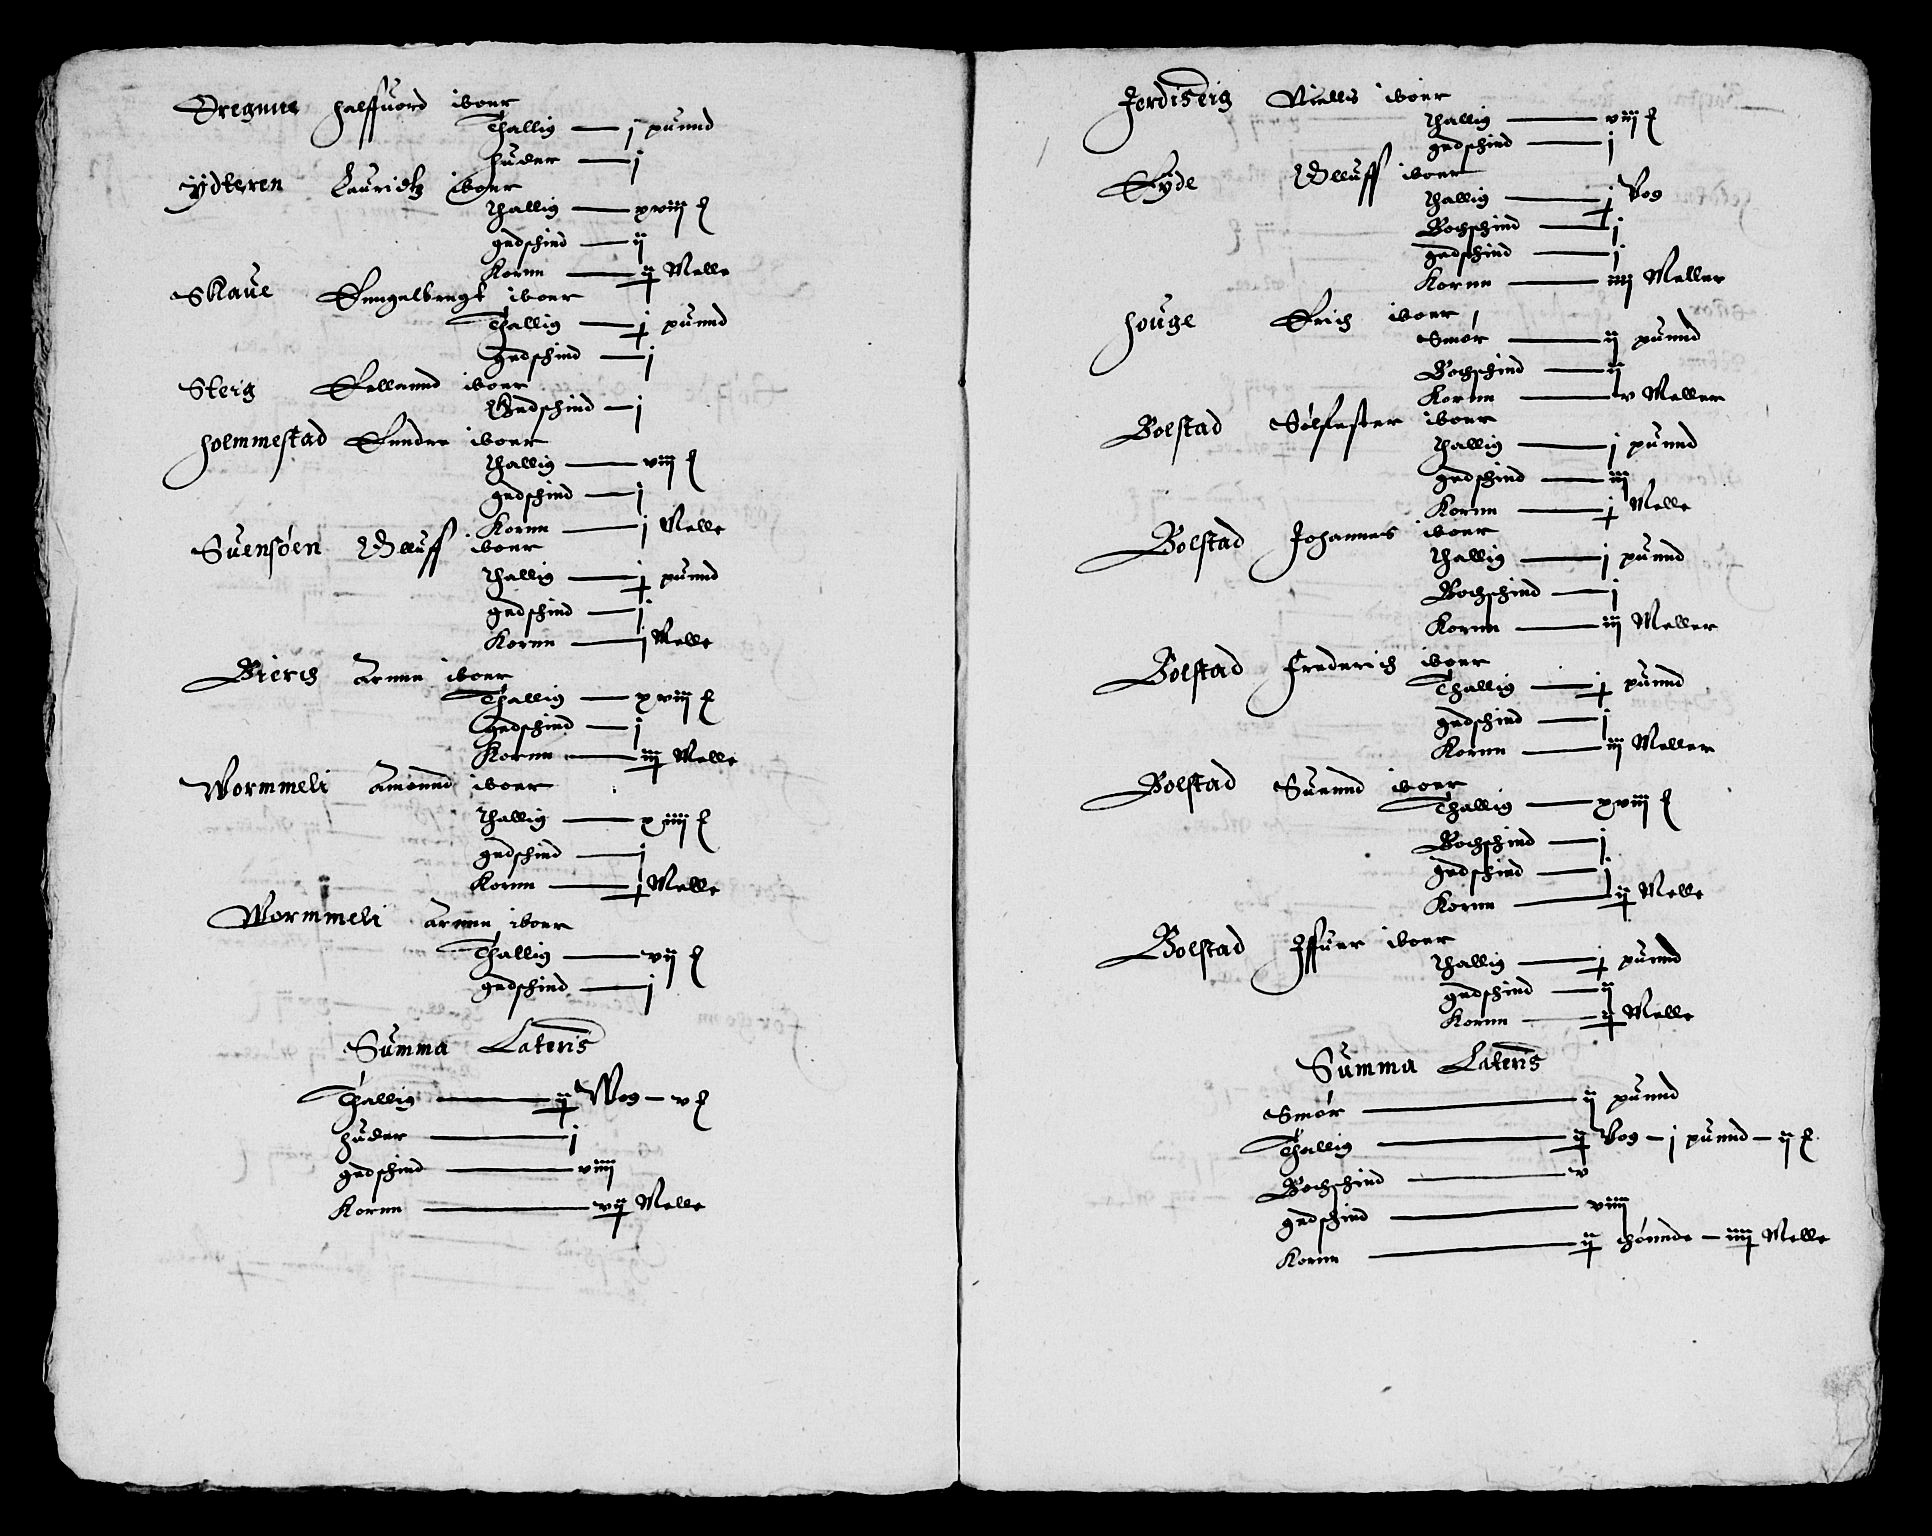 Dregnne halffuord iboer
Thallig — j punnd
huder — j
ÿdteren Lauridtz iboer
Thallig — xviij ℔
gedschind — ij
Kornn — ij Melle
Skaue Enngelbregt iboer
Thallig — j punnd
gedschind — j
Steig Ellannd iboer
Gedschind — j
holmmestad Enndre iboer
Thallig — viij ℔
gedschind — j
Kornn — j Melle
Suensøen Olluff iboer
Thallig — j punnd
gedschind — j
Kornn — j Melle
Bierch Arnne iboer
Thallig — xviij ℔
gedschind — j
Kornn — iij Melle
Wormmeli Amonnd iboer
Thallig — xiiij ℔
gedschind — j
Kornn — j Melle
Wormmeli Arnne iboer
Thallig — vij ℔
gedschind — j
Summa Lateris
Thallig — ij Wog — v ℔
huder — j
gedschind — viiij
Kornn — vij Melle
Jerdiseig Niellis iboer
Thallig — viij ℔
gedschind — j
Eÿde Olluff iboer
Thallig — j Vog
Bochschind — j
gedschind — j
Kornn — iiij Meller
houge Erich iboer
Smør — ij punnd
Bochschind — ij
Kornn — v Meller
Bolstad Sølfester iboer
Thallig — j punnd
gedschind — iij
Kornn — j Melle
Bolstad Johannes iboer
Thallig — j punnd
Bochschind — j
Kornn — iij Meller
Bolstad Frederich iboer
Thallig — j punnd
gedschind — j
Kornn — iij Meller
Bolstad Suennd iboer
Thallig — xviij ℔
Bochschind — j
gedschind — j
Kornn — ij Melle
Bolstad Iffuer iboer
Thallig — j punnd
gedschind — ij
Kornn — ij Melle
Summa Lateris
Smør — ij punnd
Thallig — ij Vog — j punnd — ij ℔
Bochschind — v
gedschind — viiij
Kornn — ij thønnde — iiij Melle